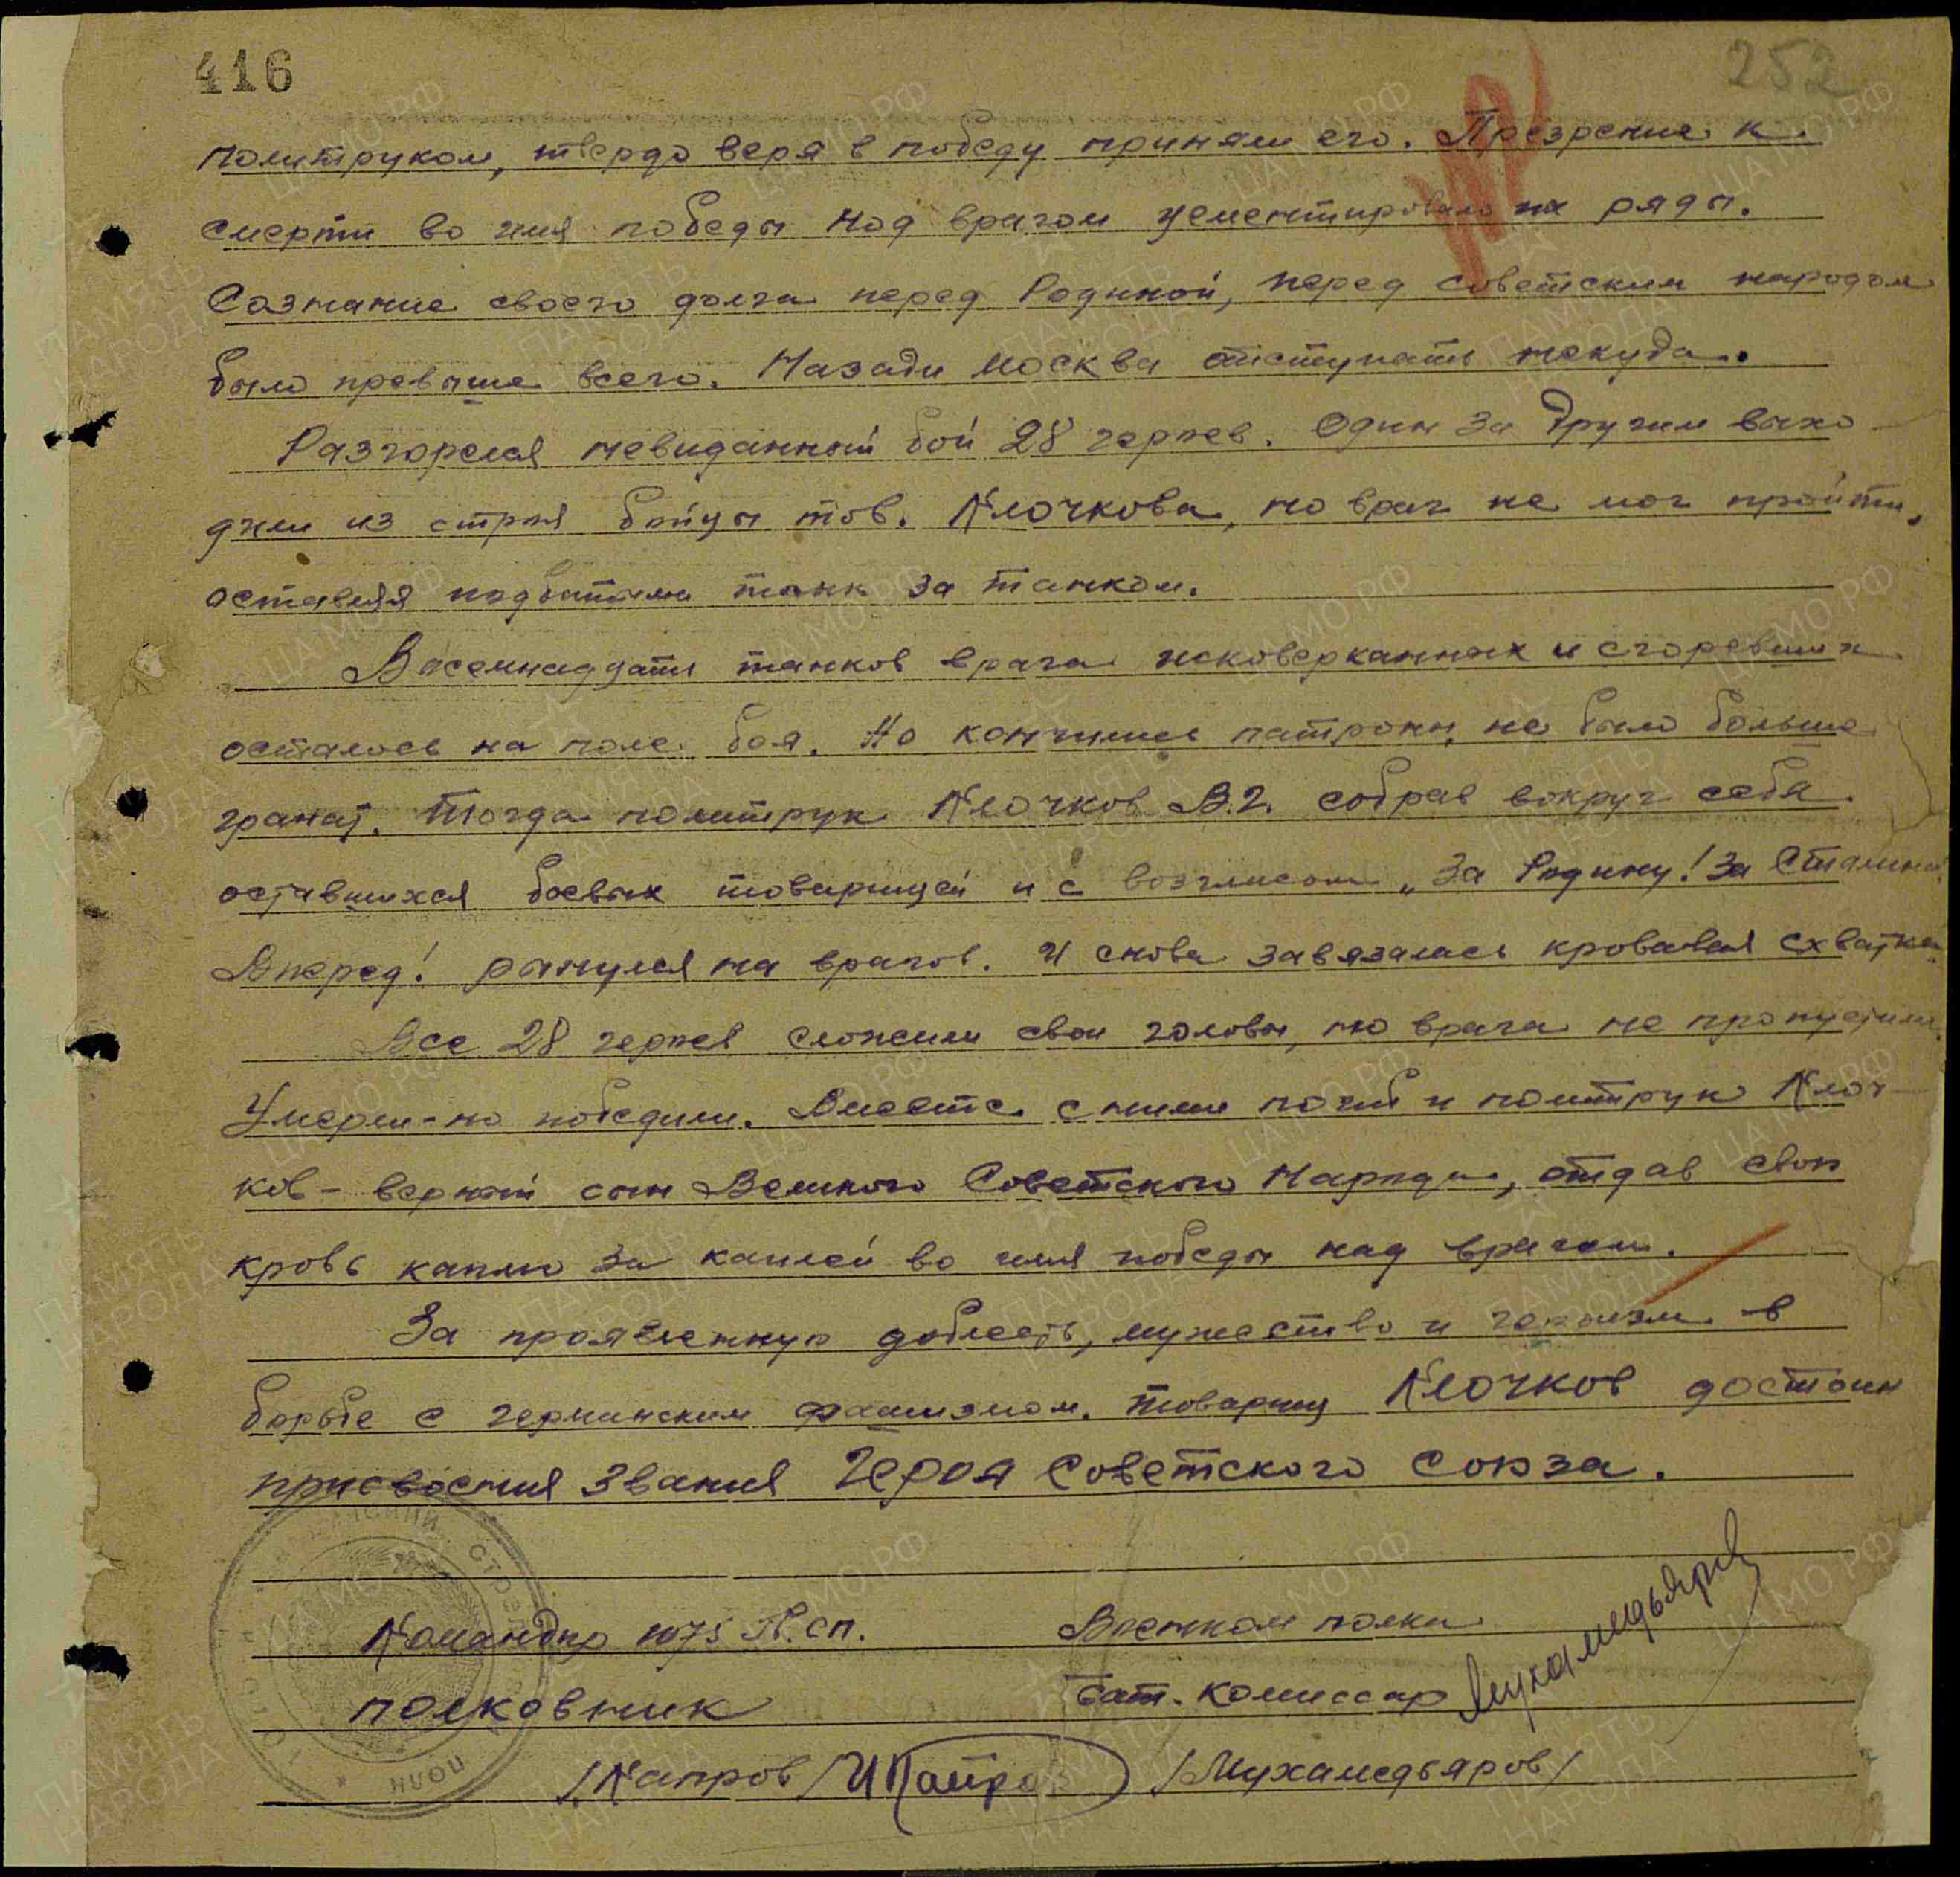 416
252
политруком, твердо веря в победу приняли его. Презрение к
смерти во имя победы над врагом цементировало их ряды.
Сознание своего долга перед Родиной, перед советским народом
было превыше всего. Назади Москва отступать некуда.
Разгорелся невиданный бой 28 героев. Один за другим выхо-
дили из строя бойцы тов. Клочкова, но враг не мог пройти,
оставляя подбитыми танк за танком.
Восемнадцать танков врага исковерканных и сгоревших
осталось на поле боя. Но кончились патроны, не было больше
гранат. Тогда политрук Клочков В.Г. собрав вокруг себя
оставшихся боевых товарищей и с возгласом „За Родину! За Сталина!
Вперед! ринулся на врагов. И снова завязалась кровавая схватка.
Все 28 героев сложили свои головы, но врага не пропустили.
Умерли-но победили. Вместе с ними погиб и политрук Клоч-
ков - верный сын Великого Советского Народа, отдав свою
кровь каплю за каплей во имя победы над врагом.
За проявленную доблесть, мужество и героизм в
борьбе с германским фашизмом. товарищ Клочков достоин
присвоения звания Героя Советского Союза.
Командир 1075 сп. Военком полка
полковник бат. комиссар Мухамедьяров
/Капров/ ИКапров /Мухамедьяров/
ЦАМО РФ
ПАМЯТЬ НАРОДА